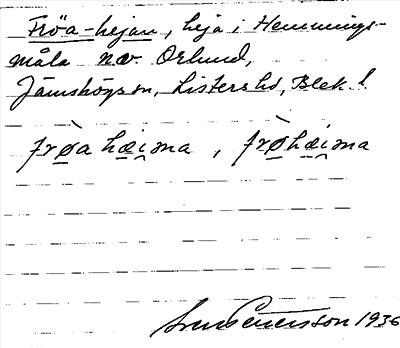 Fröa-hejan, heja i Hemmings-
måla nv. Orlund,
Jämshögs sn, Listers hd, Blek. l.
frø̀a hæi̯ma, frø̀hæi̯ma
Sven Svensson 1936